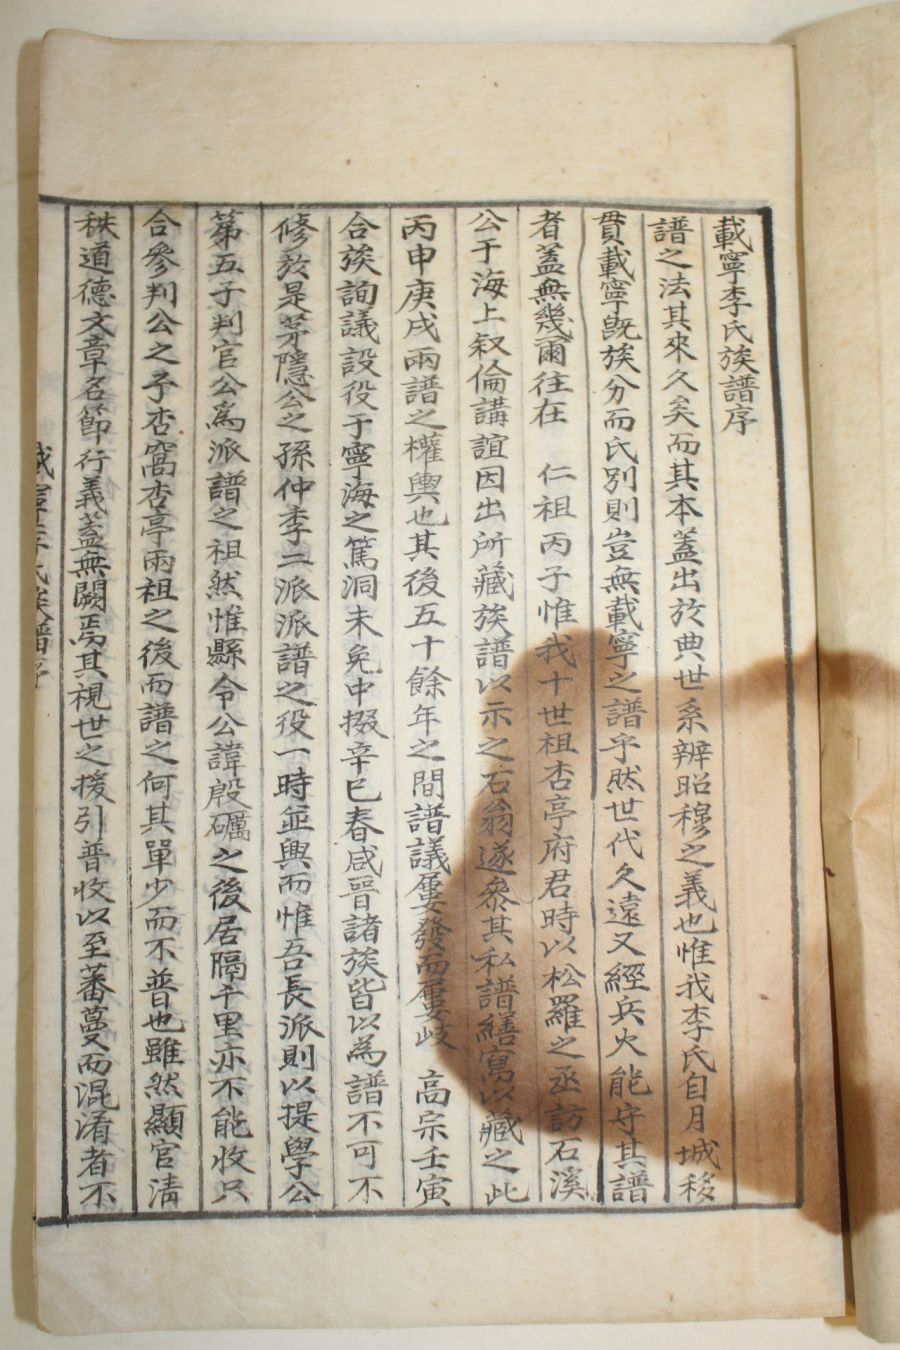 載寧李氏族譜序
譜之法其來久矣而其本蓋出於典世系辨昭穆之義也惟我李氏自月城移
貫載寧旣族分而氏別則豈無載寧之譜乎然世代久遠又經兵火能守其譜
者蓋無幾爾往在 仁祖丙子惟我十世祖杏亭府君時以松羅之丞訪石溪
公于海上叙倫講誼因出所藏族譜以示之石翁遂參其私譜繕寫以藏之此
丙申庚戌兩譜之權輿也其後五十餘年之間譜議屢發而屢岐 高宗壬寅
合族詢議設役于寧海之篤洞未免中掇辛巳春咸晉諸族皆以為譜不可不
修於是茅隱公之孫仲季二派派譜之役一時並興而惟吾長派則以提學公
第五子判官公爲派譜之祖然惟縣令公諱殷礪之後居隔千里亦不能收只
合參判公之子杏窩杏亭兩祖之後而譜之何其單少而不普也雖然顯官淸
秩道德文章名節行義蓋無闕焉其視世之援引普收以至蕃蔓而混淆者不
載寧李氏族譜序